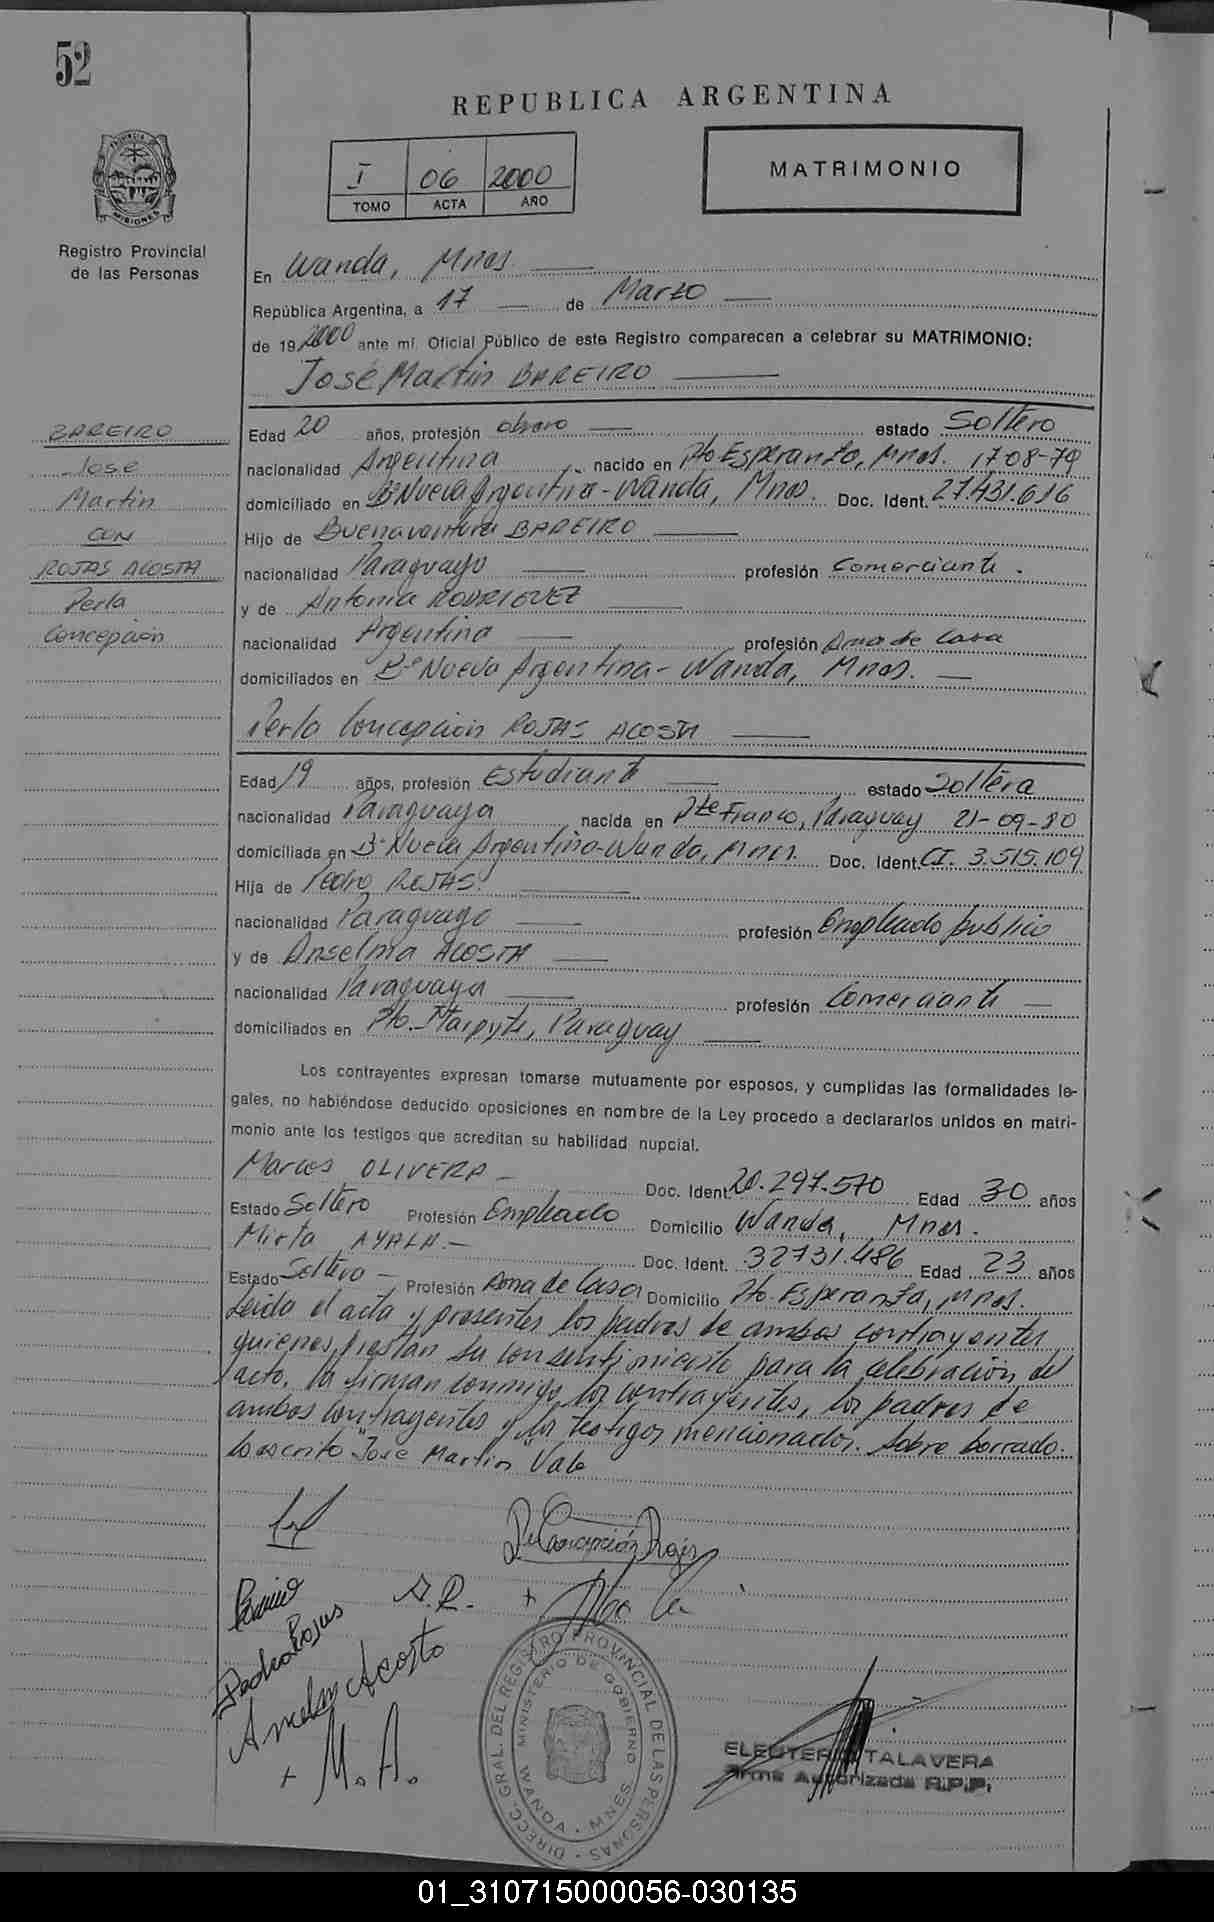 52
REPUBLICA ARGENTINA
I 06 2000
TOMO ACTA AÑO
MATRIMONIO
PROVINCIA DE MISIONES
Registro Provincial
de las Personas
En Wanda, Mnes.
República Argentina, a 17 de Marzo
de 19 2000 ante mí, Oficial Público de este Registro comparecen a celebrar su MATRIMONIO:
José Martin BAREIRO
BAREIRO
José
Martin
CON
ROJAS ACOSTA
Perla
Concepción
Edad 20 años, profesión obrero estado Soltero
nacionalidad Argentina nacido en Pto Esperanza, Mnes. 17-08-79
domiciliado en Bº Nueva Argentina-Wanda, Mnes. Doc. Ident. 27.431.616
Hijo de Buenaventura BAREIRO
nacionalidad Paraguayo profesión Comerciante.
y de Antonia RODRIGUEZ
nacionalidad Argentina profesión Ama de Casa
domiciliados en Bº Nueva Argentina-Wanda, Mnes.
Perla Concepción ROJAS ACOSTA
Edad 19 años, profesión Estudiante estado Soltera
nacionalidad Paraguaya nacida en Pte Franco, Paraguay 21-09-80
domiciliada en Bº Nueva Argentina-Wanda, Mnes. Doc. Ident. CI. 3.515.109
Hija de Pedro ROJAS.
nacionalidad Paraguayo profesión Empleado publico
y de Anselma ACOSTA
nacionalidad Paraguaya profesión Comerciante
domiciliados en Pto. Itaipyte, Paraguay
Los contrayentes expresan tomarse mutuamente por esposos, y cumplidas las formalidades le-
gales, no habiéndose deducido oposiciones en nombre de la Ley procedo a declararlos unidos en matri-
monio ante los testigos que acreditan su habilidad nupcial.
Marcos OLIVERA - Doc. Ident. 20.297.570 Edad 30 años
Estado Soltero Profesión Empleado Domicilio Wanda, Mnes.
Mirta AYALA.- Doc. Ident. 32731.486 Edad 23 años
Estado Soltera - Profesión Ama de Casa Domicilio Pto. Esperanza, Mnes.
Leida el acta y presentes los padres de ambos contrayentes
quienes prestan su consentimiento para la celebración del
acto, la firman conmigo los contrayentes, los padres de
ambos contrayentes y los testigos mencionados. Sobre borrado:
lo escrito "José Martin" Vale
Concepción Rojas
A.R. +
Pedro Rojas
Acosta
+ M.A.
DIRECC. GRAL. DEL REGISTRO PROVINCIAL DE LAS PERSONAS
MINISTERIO DE GOBIERNO
WANDA - MNES
ELEUTERIO TALAVERA
Firma Autorizada R.P.P.
01_310715000056-030135